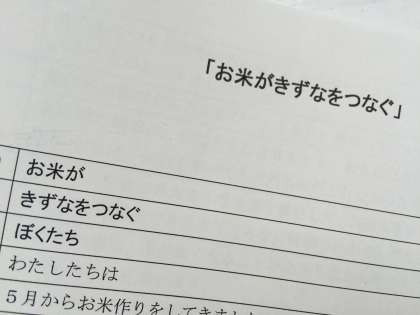 「お米がきずなをつなぐ」
お米が
きずなをつなぐ
ぼくたち
わたしたちは
５月からお米作りをしてきまし